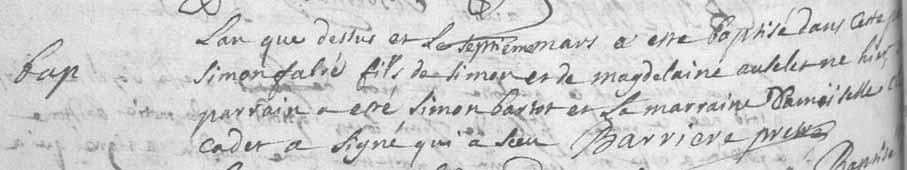 bap
Lan que dessus et Le septieme mars a este baptisé dans cette
Simon fabré fils de simon et de magdelaine auselet ne hier
parrain a esté simon bartot et La marraine damoiselle
cadet a signé qui a sceu Barriere pretre
Baptisé